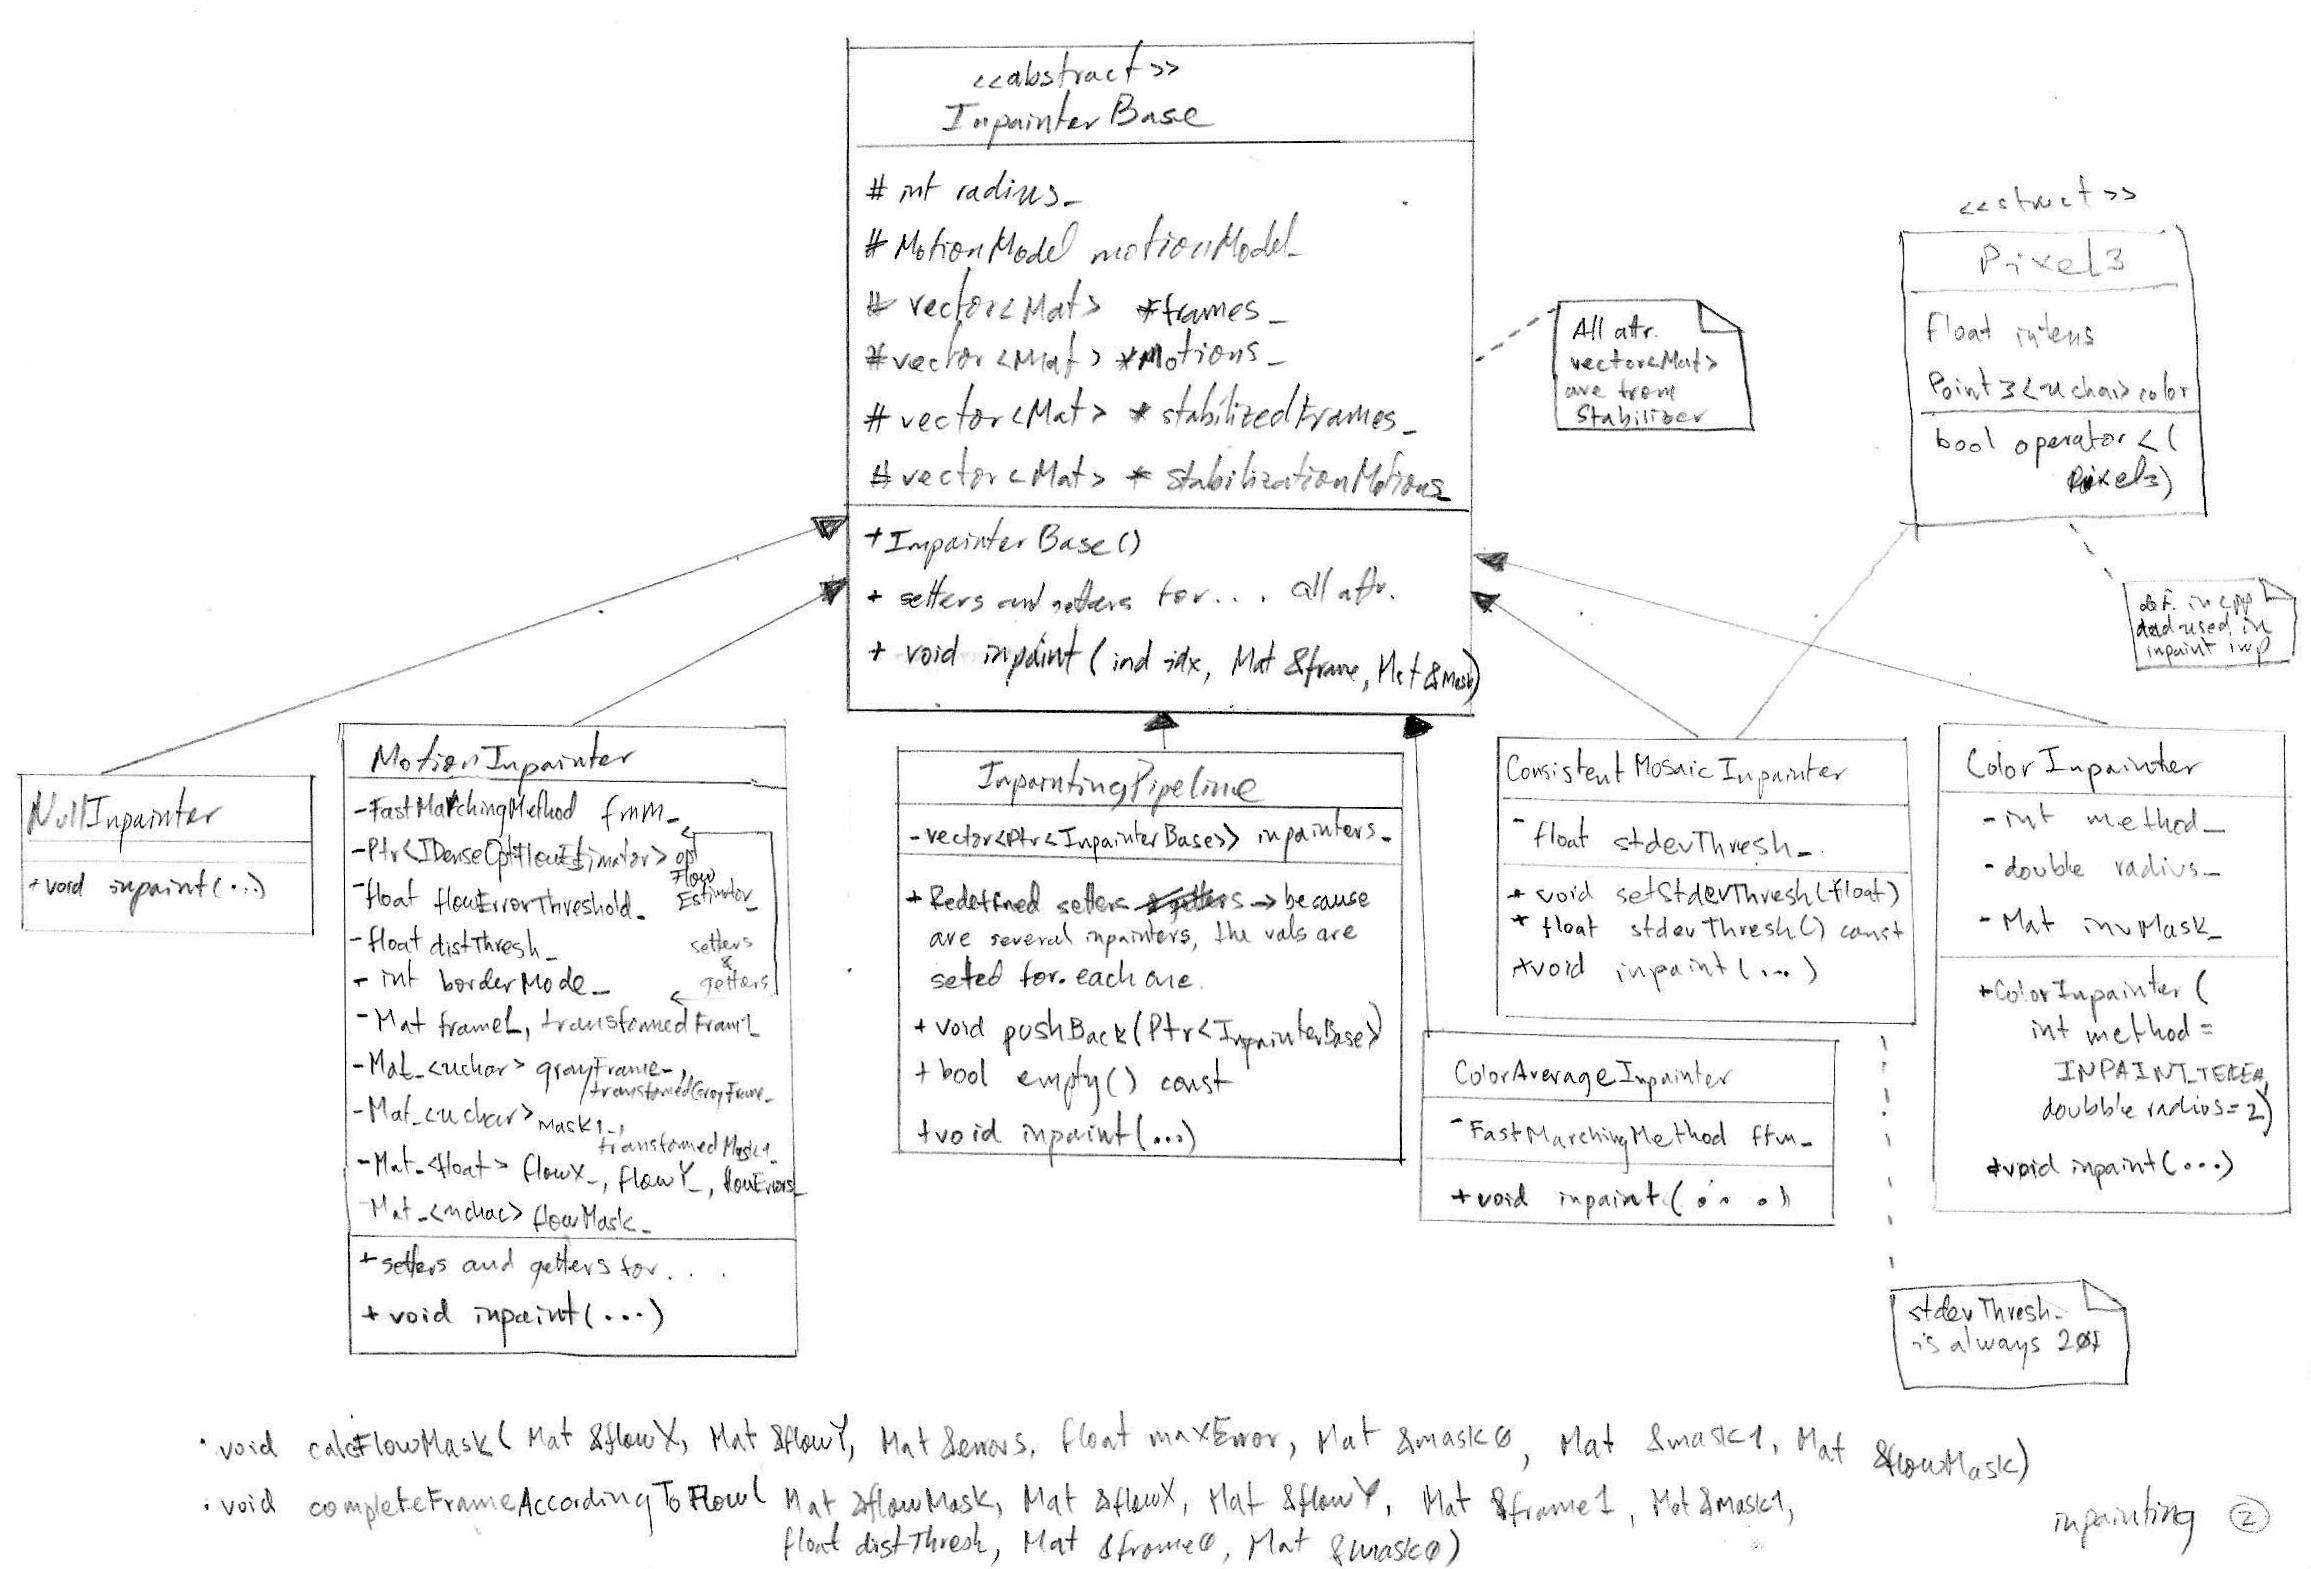 <<abstract>>
InpainterBase
# int radius_
# MotionModel motionModel_
# vector<Mat> *frames_
# vector<Mat> *Motions_
# vector<Mat> * stabilizedFrames_
# vector<Mat> * stabilizationMotions_
+ InpainterBase()
+ setters and getters for... all atr.
+ void inpaint( ind idx, Mat &frame, Mat &mask)
All atr.
vector<Mat>
are from
Stabilizer
<<struct>>
Pixel3
float intens
Point3<uchar> color
bool operator <(
Pixel3)
def. in cpp
and used in
inpaint imp
NullInpainter
+ void inpaint(...)
MotionInpainter
- FastMarchingMethod fmm_
- Ptr<IDenseOptFlowEstimator> opt
Flow
Estimator_
- float flowErrorThreshold_
- float distThresh_
- int borderMode_
setters
&
getters
- Mat frame1, transformedFrame1
- Mat_<uchar> grayFrame_,
transformedGrayFrame_
- Mat_<uchar> mask1_,
transformedMask1_
- Mat_<float> flowX_, flowY_, flowErrors_
- Mat_<uchar> flowMask_
+ setters and getters for....
+ void inpaint(...)
InpaintingPipeline
- vector<Ptr<InpainterBase>> inpainters_
+ Redefined setters & getters → because
are several inpainters, the vals are
seted for each one.
+ void pushBack(Ptr<InpainterBase>)
+ bool empty() const
+ void inpaint(...)
ConsistentMosaicInpainter
- float stdevThresh_
+ void setStdevThresh(float)
+ float stdevThresh() const
+ void inpaint(...)
ColorAverageInpainter
- FastMarchingMethod ffm_
+ void inpaint(...)
ColorInpainter
- int method_
- double radius_
- Mat invMask_
+ ColorInpainter(
int method =
INPAINT_TELEA,
doubble radius=2)
+ void inpaint(...)
stdevThresh_
is always
· void calcFlowMask( Mat &flowX, Mat &flowY, Mat &errors, float maxError, Mat &mask0, Mat &mask1, Mat &flowMask)
· void completeFrameAccordingToFlow( Mat &flowMask, Mat &flowX, Mat &flowY, Mat &frame1, Mat &mask1,
float distThresh, Mat &frame0, Mat &mask0)
inpainting ②